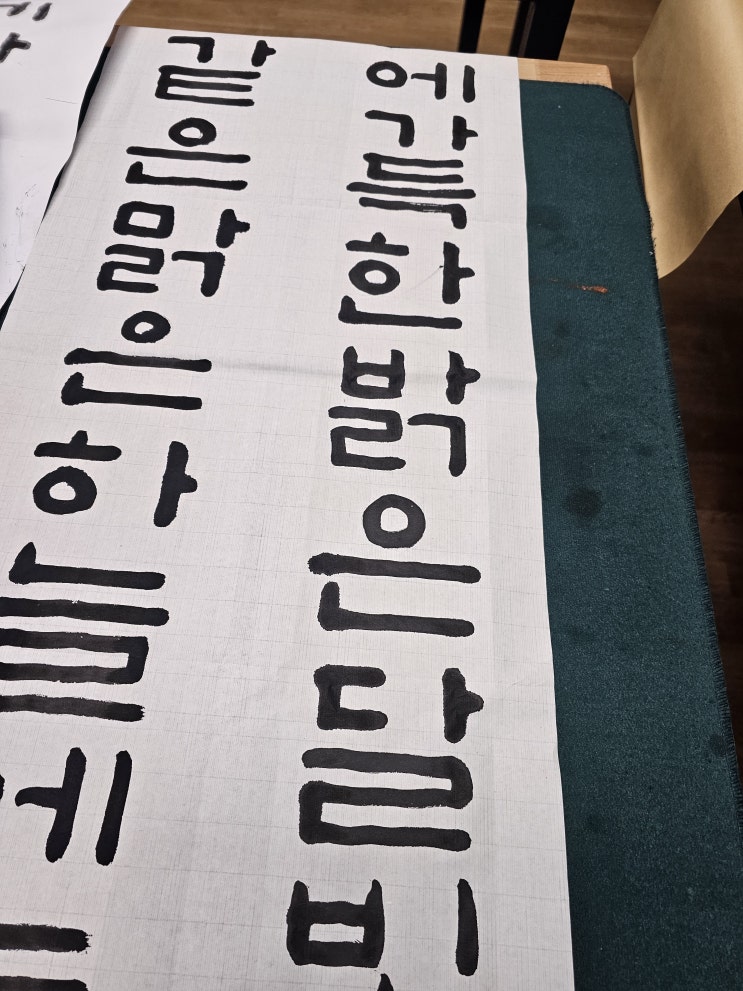 에가득한밝은달
같은맑은하늘에